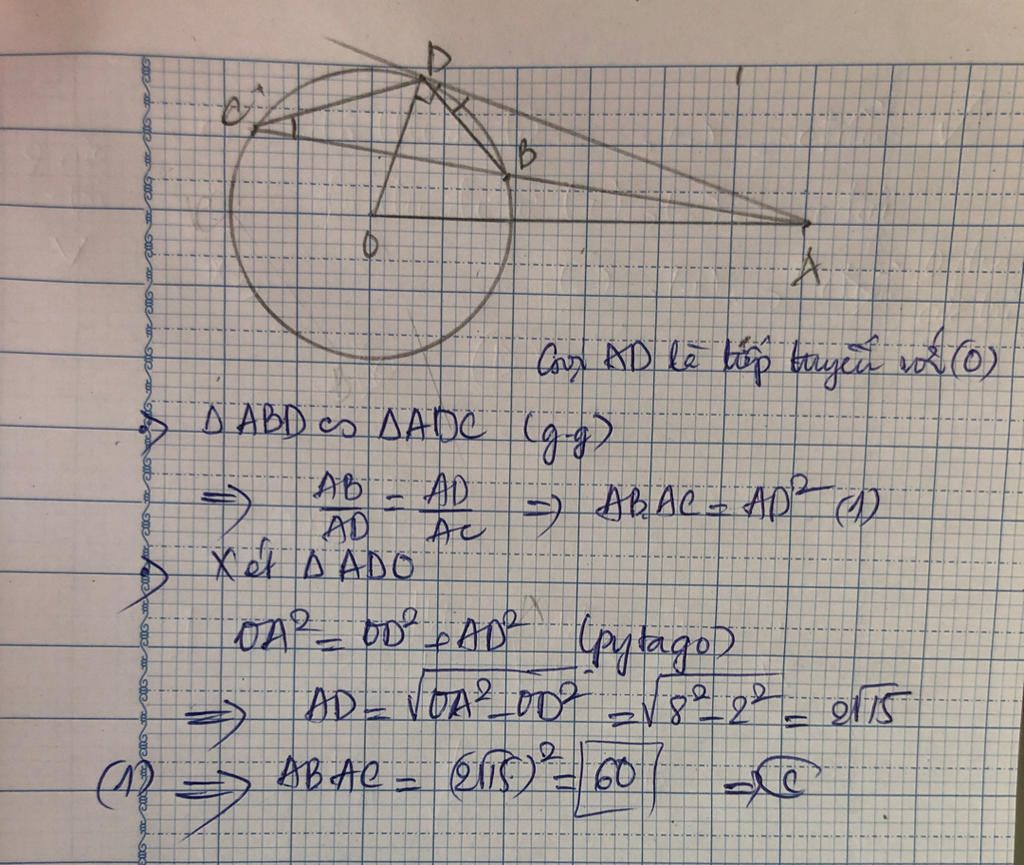 D
C
1
B
O
A
AD là tiếp tuyến với (O)
ΔABD ∽ ΔADC (g-g)
=> AB/AD = AD/AC => AB.AC = AD² (1)
Xét ΔADO
OA² = OD² + AD² (pytago)
=> AD = √(OA² - OD²) = √(8² - 2²) = 2√15
(1) => AB AC = (2√15)² = 60 => C